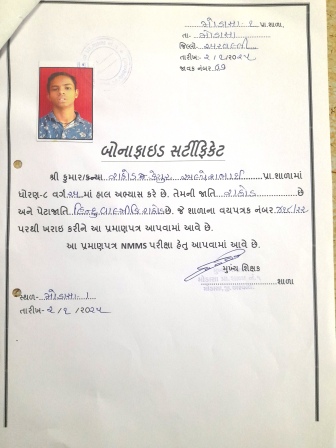 મોડાસા-૧ પ્રા.શાળા,
તા- મોડાસા
જિલ્લો- અરવલ્લી
તારીખ- ૨/૧/૨૦૨૫
જાવક નંબર ૭૧
બોનાફાઇડ સર્ટીફિકેટ
શ્રી કુમાર/કન્યા રાઠોડ પ્રા.શાળામાં
ધોરણ-૮ વર્ગ માં હાલ અભ્યાસ કરે છે. તેમની જાતિ રાઠોડ છે
અને પેટાજાતિ હિન્દુ વાલ્મીકિ રાઠોડ છે. જે શાળાના વયપત્રક નંબર
પરથી ખરાઇ કરીને આ પ્રમાણપત્ર આપવામાં આવે છે.
આ પ્રમાણપત્ર NMMS પરીક્ષા હેતુ આપવામાં આવે છે.
મુખ્ય શિક્ષક
શાળા
સ્થળ- મોડાસા-૧
તારીખ-૨/૧/૨૦૨૫